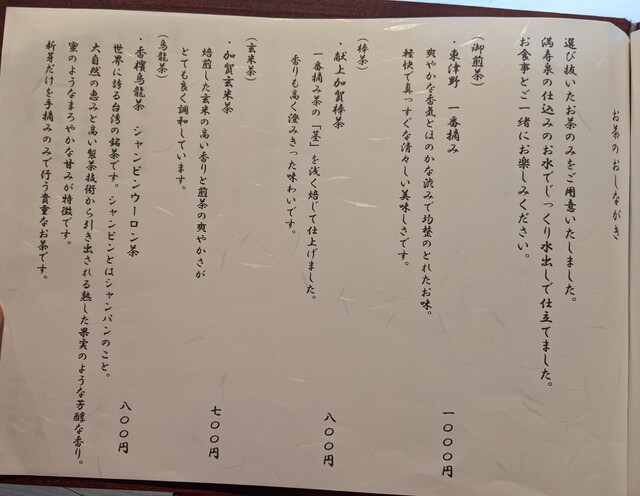 お茶のおしながき
選び抜いたお茶のみをご用意いたしました。
満寿泉の仕込みのお水でじっくり水出しで仕立てました。
お食事とご一緒にお楽しみください。
（御煎茶）
・東津野　一番摘み　一〇〇〇円
爽やかな香気とほのかな渋みで均整のとれたお味。
軽快で真っすぐな清々しい美味しさです。
（棒茶）
・献上加賀棒茶　八〇〇円
一番摘み茶の「茎」を浅く焙じて仕上げました。
香りも高く澄みきった味わいです。
（玄米茶）
・加賀玄米茶　七〇〇円
焙煎した玄米の高い香りと煎茶の爽やかさが
とても良く調和しています。
（烏龍茶）
・香檳烏龍茶　シャンピンウーロン茶　八〇〇円
世界に誇る台湾の銘茶です。シャンピンとはシャンパンのこと。
大自然の恵みと高い製茶技術から引き出される熟した果実のような芳醇な香り。
蜜のようなまろやかな甘みが特徴です。
新芽だけを手摘みのみで行う貴重なお茶です。